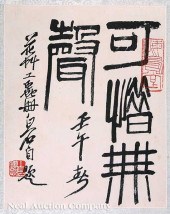 可惜無
聲
壬午春
花艸工蟲冊白石自題
Neal Auction Company